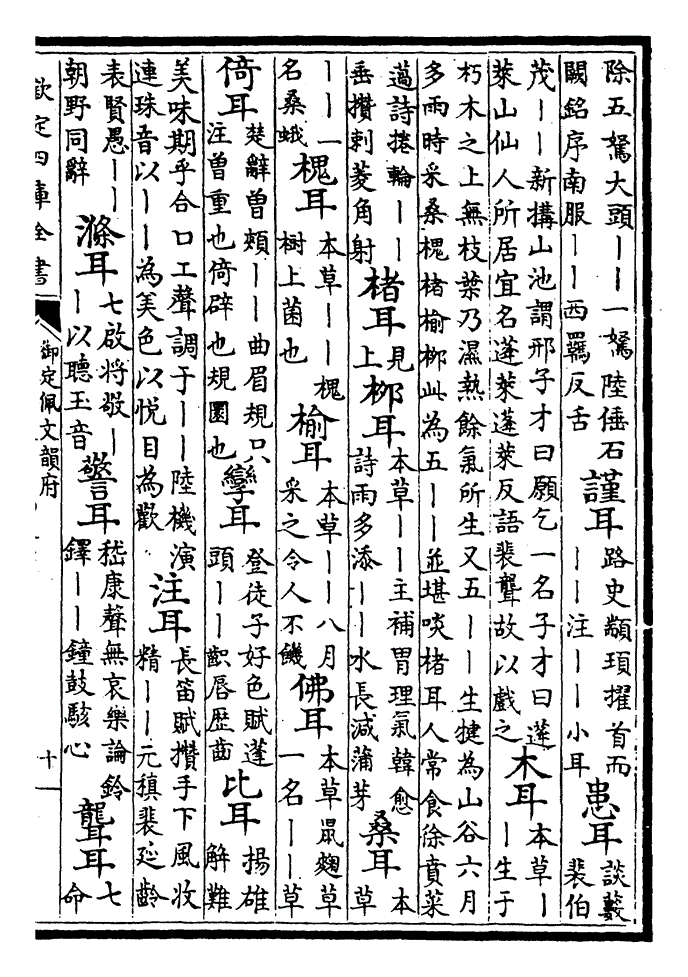 除五駑大頭丨丨一駑陸倕石
闕銘序南服丨丨西羈反舌
謹耳
路史顓頊擢首而
丨丨注丨丨小耳
患耳
談藪
裴伯
茂丨丨新搆山池謂邢子才曰願乞一名子才曰蓬
萊山仙人所居宜名蓬萊蓬萊反語裴聾故以戲之
木耳
本草丨
丨生于
朽木之上無枝葉乃濕熱餘氣所生又五丨丨生揵為山谷六月
多雨時采桑槐楮榆栁此為五丨丨並堪啖楮耳人常食徐賁菜
薖詩捲輪丨丨
垂攢刺菱角射
楮耳
見
上
栁耳
本草丨丨主補胃理氣韓愈
詩雨多添丨丨水長減蒲芽
桑耳
本
草
丨丨一
名桑蛾
槐耳
本草丨丨槐
樹上菌也
榆耳
本草丨丨八月
采之令人不饑
佛耳
本草鼠麴草
一名丨丨草
倚耳
楚辭曽頰丨丨曲眉規只
注曽重也倚辟也規圜也
孿耳
登徒子好色賦蓬
頭丨丨齞唇歴齒
比耳
揚雄
解難
美味期乎合口工聲調于丨丨陸機演
連珠音以丨丨為美色以悦目為歡
注耳
長笛賦攢手下風收
精丨丨元稹裴延齡
表賢愚丨丨
朝野同辭
滌耳
七啟将敬丨
丨以聽玉音
警耳
嵇康聲無哀樂論鈴
鐸丨丨鐘鼓駭心
聾耳
七
命
欽定四庫全書
御定佩文韻府
十